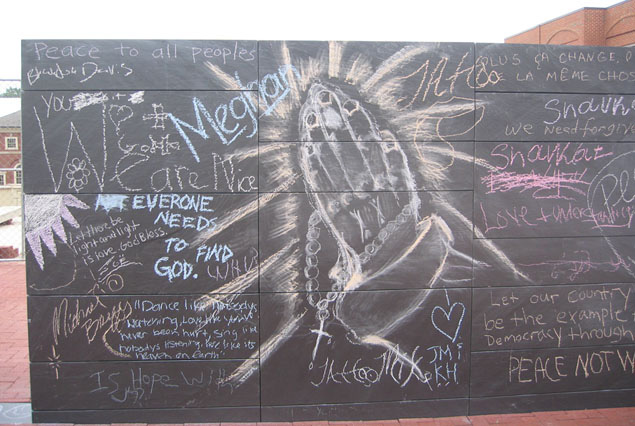 Peace to all peoples
Brandon Davis
You
We are Nice
Meghan
NOT EVERONE
NEEDS
TO FIND
GOD.
Let there be
light and light
is love. God Bless.
Michael
"Dance like Nobodys
Watching, Love like you've
never been hurt, Sing like
nobodys listening, live like it's
heaven on Earth"
Is Hope With
JMi
KH
PLUS ÇA CHANGE,
LA MÊME CHOS
Shauk
we need forgiv
Shaukat
Love + under
Let our Country
be the example
Democracy through
PEACE NOT W